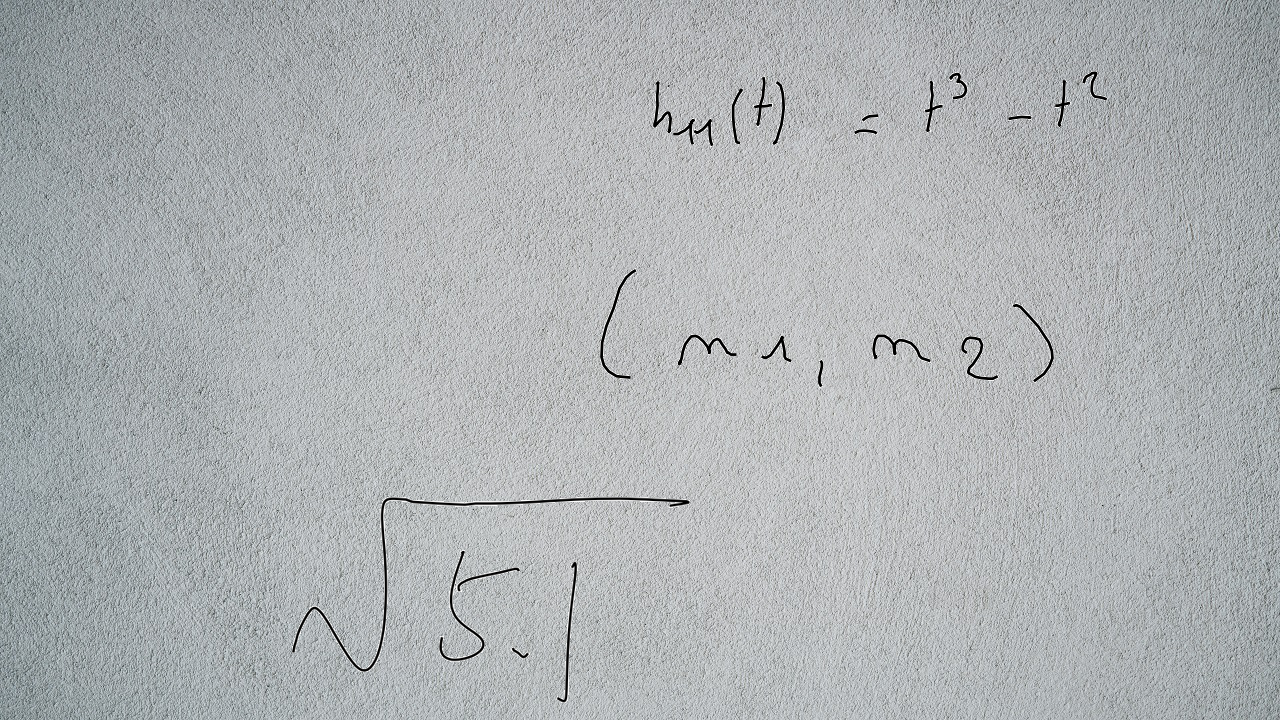 h₁₁(t) = t³ - t²
(m1, m2)
√5.1